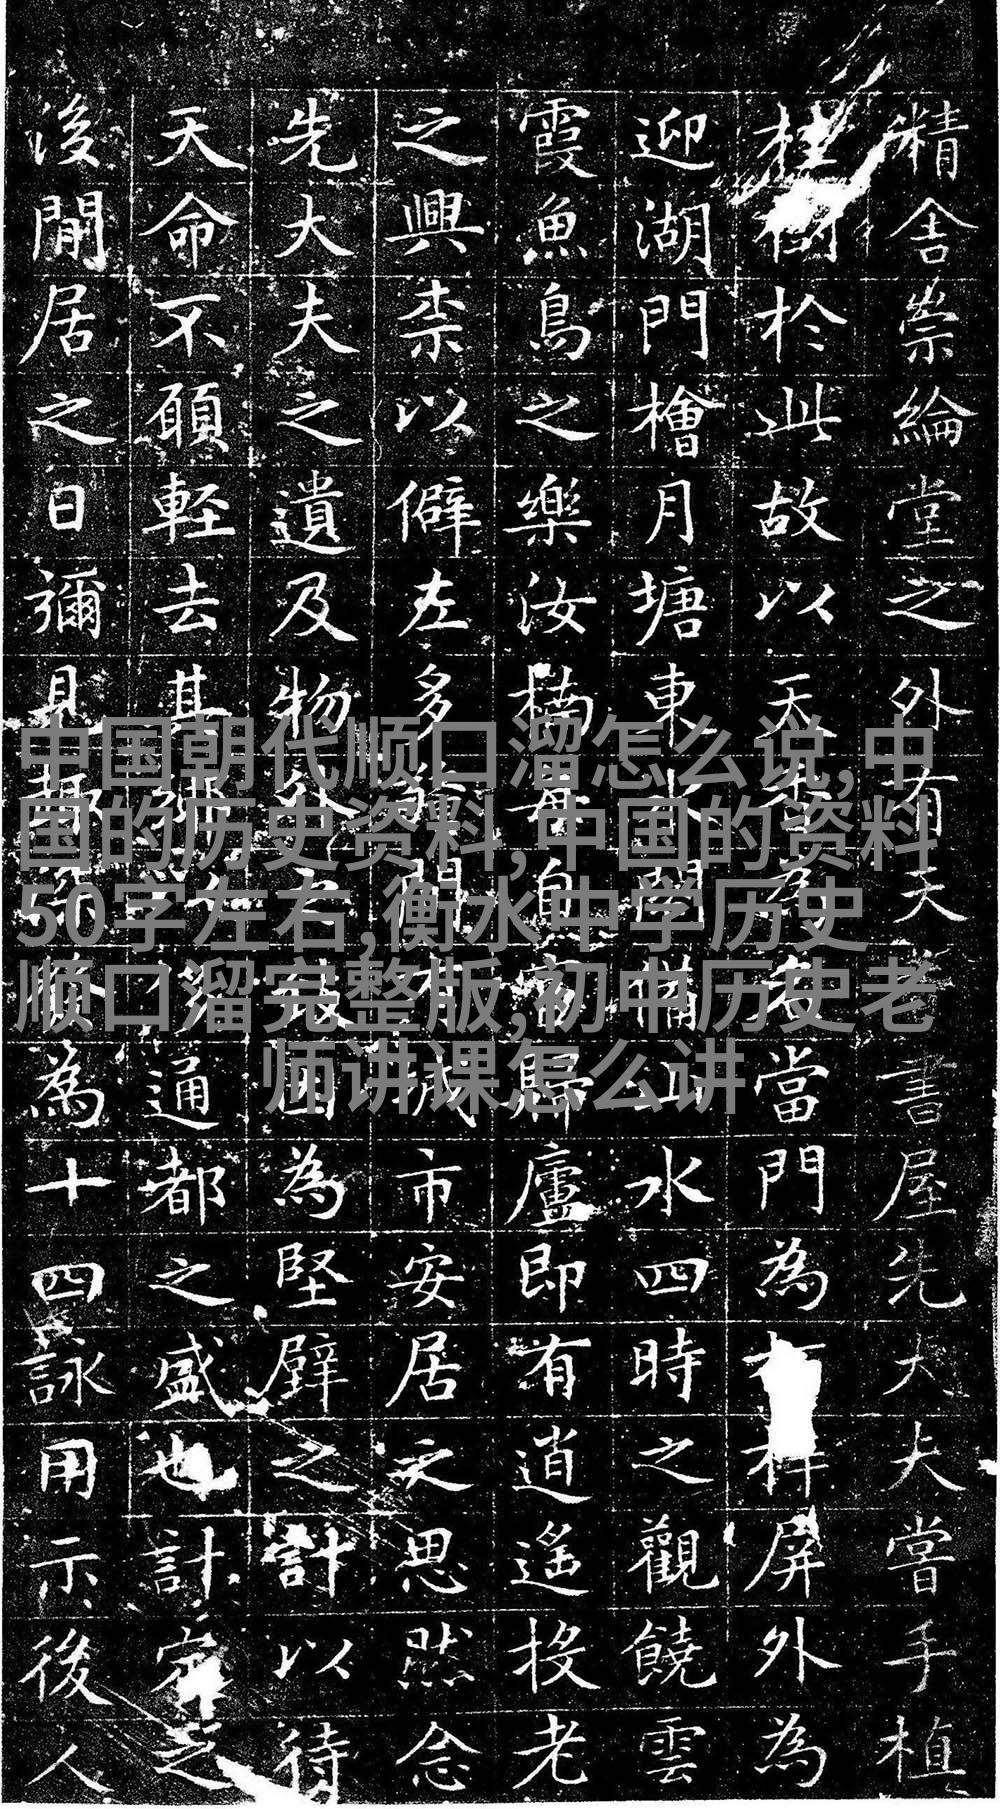 精舍崇綸堂之外有天書屋先大夫嘗手植
桂樹於此故以天為名當門為屏外為
迎湖門檜月塘東補山水四時之觀饒雲
霞魚鳥之樂汝楠毎自官歸廬即有逍遙投老
之興柰以僻左多閒有城市安居之思然念
先大夫之遺及物外因為堅壁之計以待
天命不願輕去其通都之盛也計定之
後閒居之日彌見順為十四詠用示後人
中国朝代顺口溜怎么说,中
国的历史资料,中国的资料
50字左右,衡水中学历史
顺口溜完整版,初中历史老
师讲课怎么讲